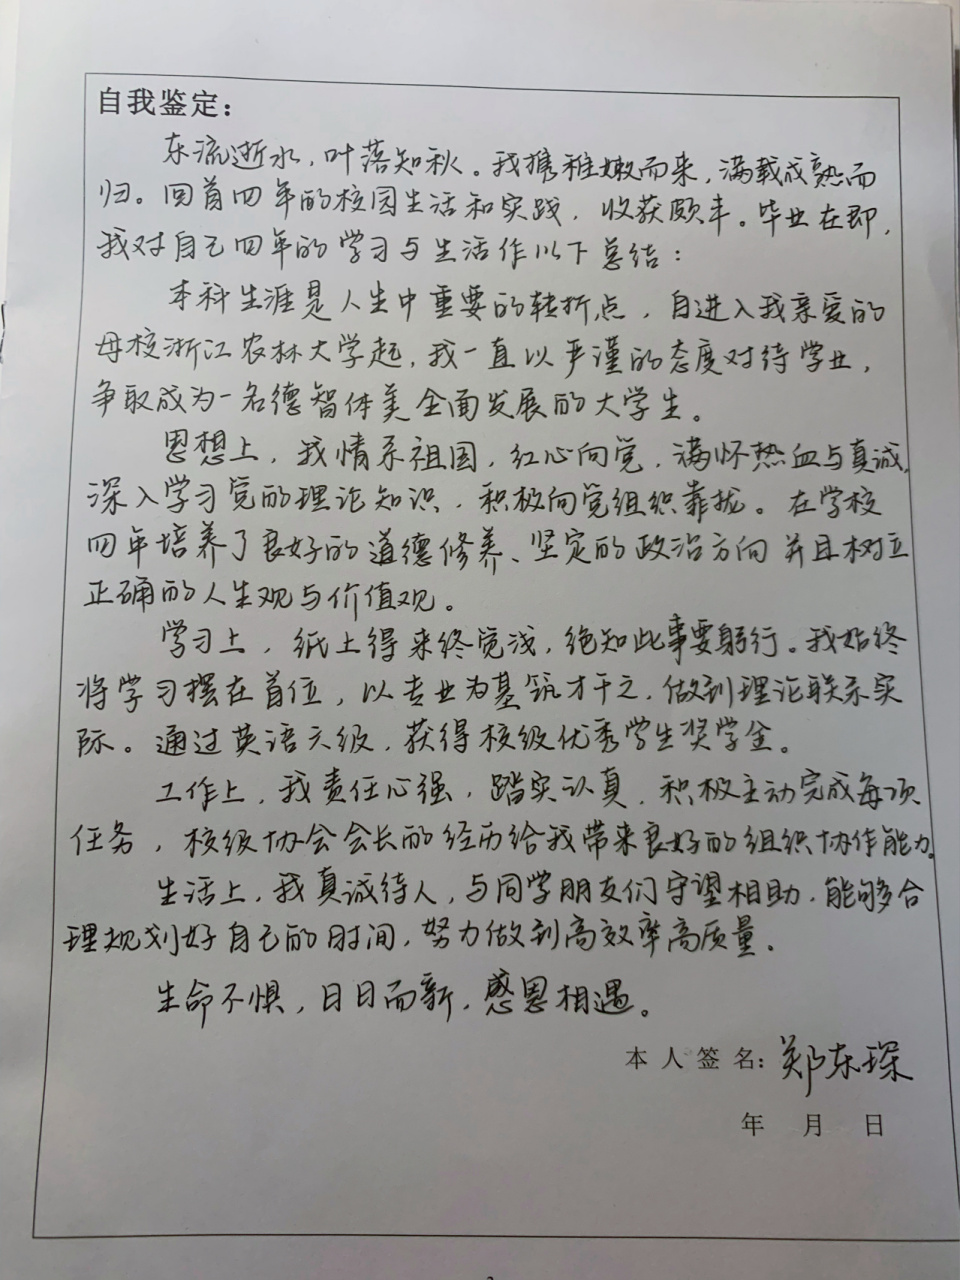 自我鉴定：
东流逝水，叶落知秋。我携稚嫩而来，满载成熟而
归。回首四年的校园生活和实践，收获颇丰。毕业在即，
我对自己四年的学习与生活作以下总结：
本科生涯是人生中重要的转折点，自进入我亲爱的
母校浙江农林大学起，我一直以严谨的态度对待学业，
争取成为一名德智体美全面发展的大学生。
思想上，我情系祖国，红心向党，满怀热血与真诚，
深入学习党的理论知识，积极向党组织靠拢。在学校
四年培养了良好的道德修养、坚定的政治方向并且树立
正确的人生观与价值观。
学习上，纸上得来终觉浅，绝知此事要躬行。我始终
将学习摆在首位，以专业为基筑才干之，做到理论联系实
际。通过英语六级，获得校级优秀学生奖学金。
工作上，我责任心强，踏实认真，积极主动完成每项
任务，校级协会会长的经历给我带来良好的组织协作能力。
生活上，我真诚待人，与同学朋友们守望相助，能够合
理规划好自己的时间，努力做到高效率高质量。
生命不惧，日日而新，感恩相遇。
本人签名：郑东琛
年 月 日